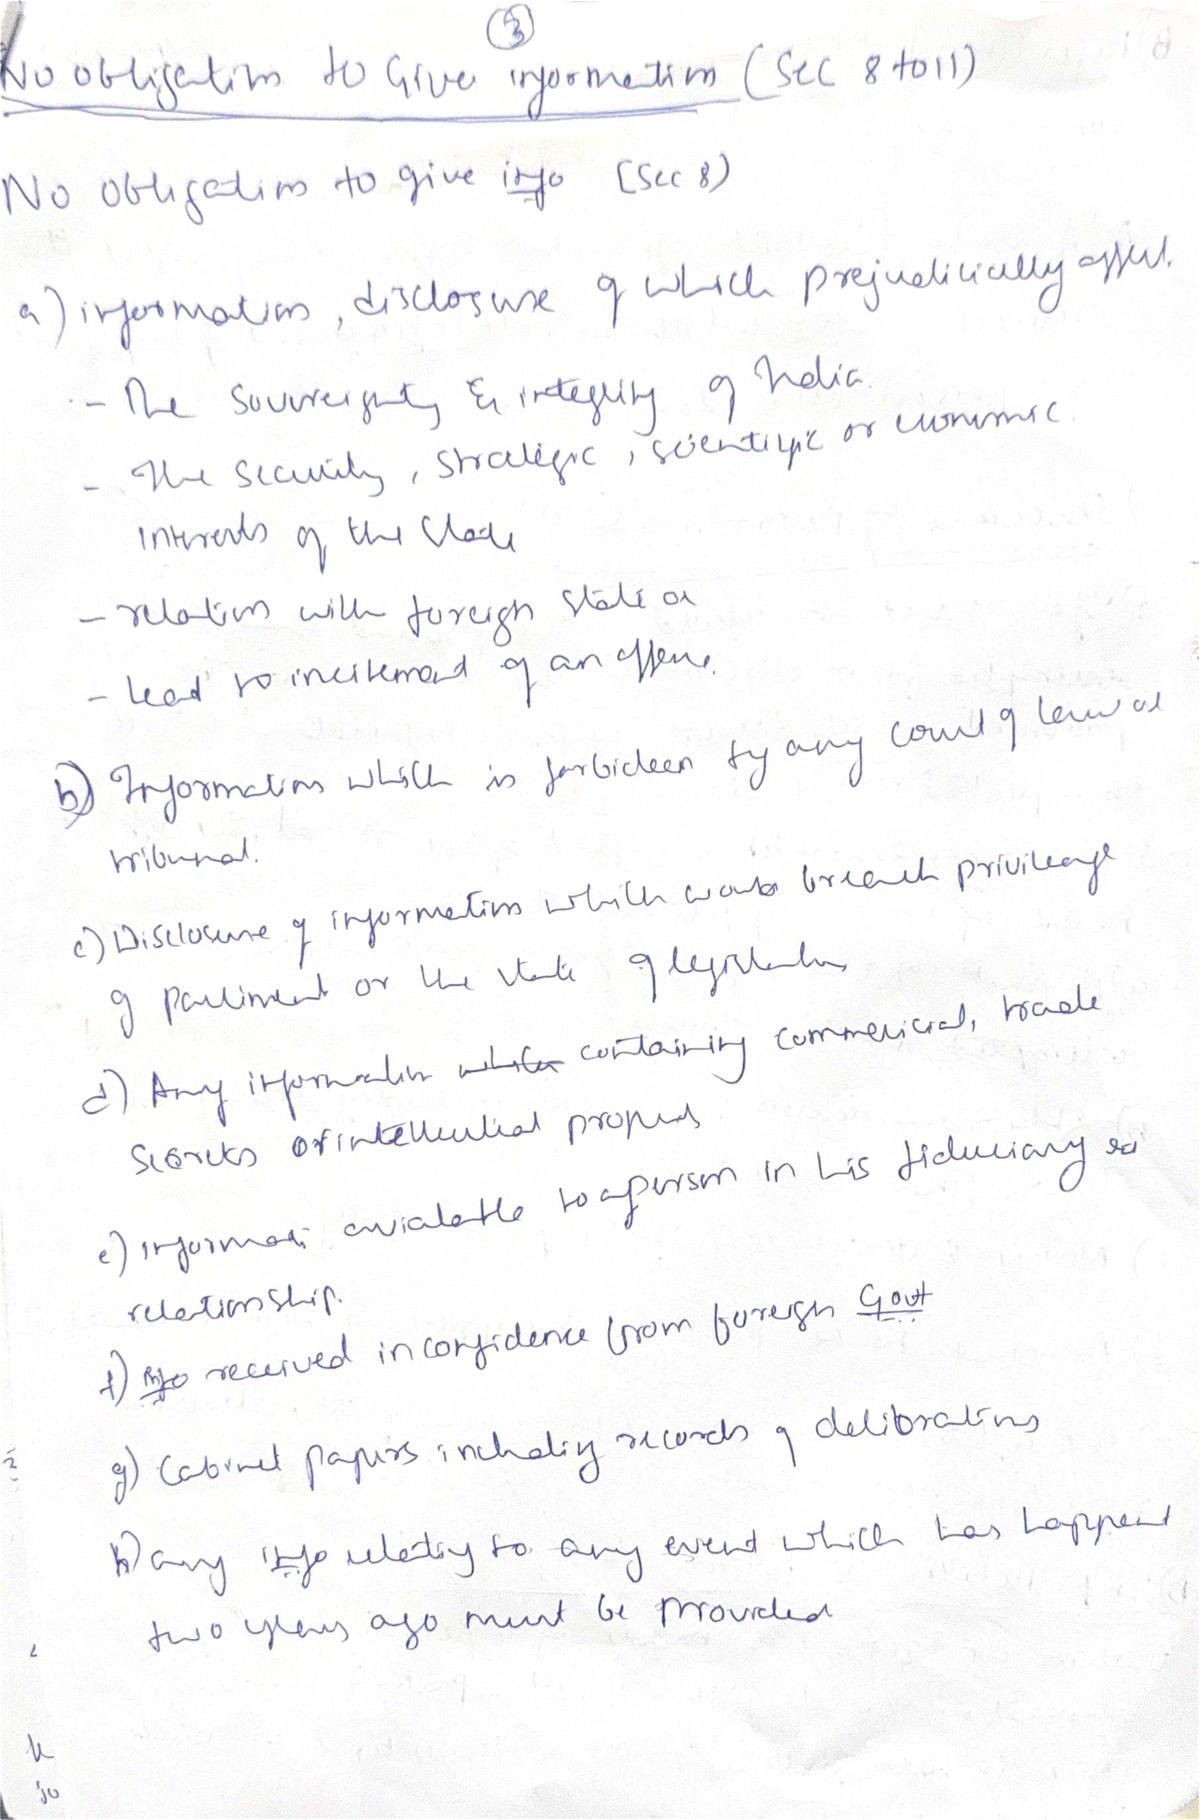 3
No obligation to Give information (Sec 8 to 11)
No obligation to give info (Sec 8)
a) information, disclosure of which prejudicially affect.
- The sovereignty & integrity of India.
- The security, strategic, scientific or economic
interests of the State
- relation with foreign state or
- lead to incitement of an offence.
b) Information which is forbideen by any court of law or
tribunal.
c) Disclosure of information which would breach privileage
of parliment or the state of legislature
d) Any information containing commericial, trade
secrets or intellectual property
e) informati avialable to a person in his fiduciary
relationship.
f) Info received in confidence from foreign Govt
g) Cabinet papers including records of delibrations
h) any info relating to any event which has happened
two years ago must be provided